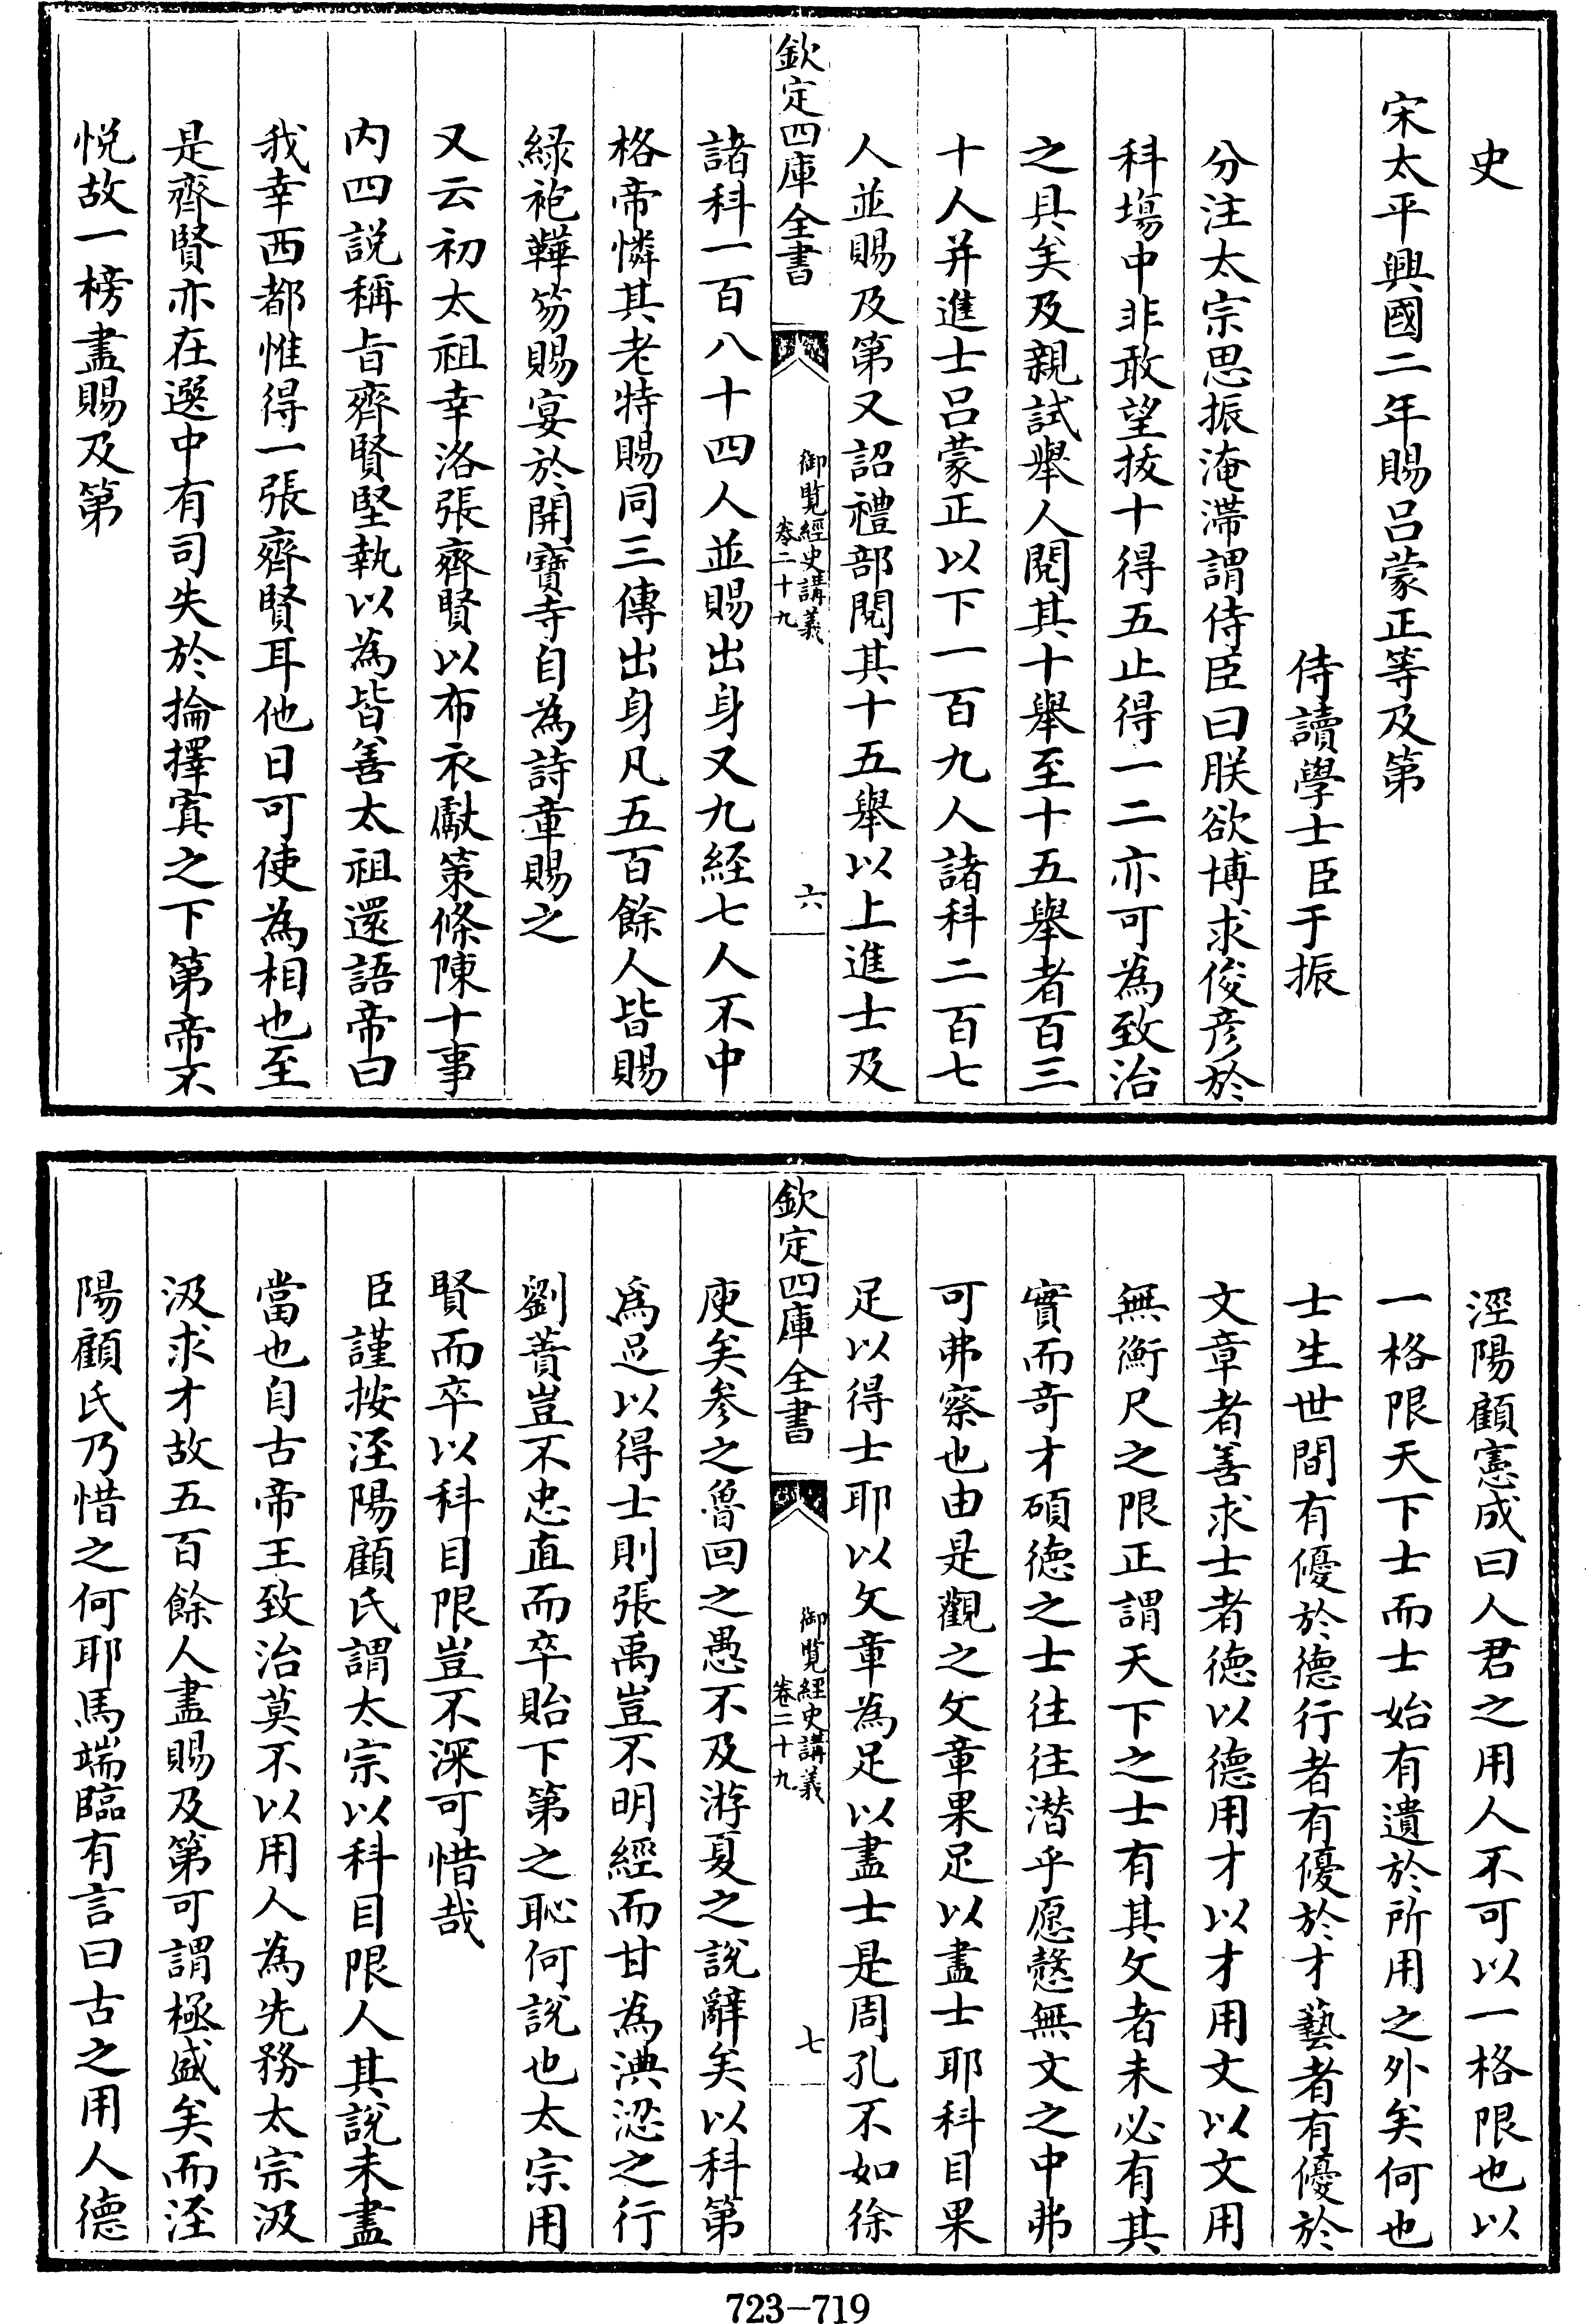 史
宋太平興國二年賜呂蒙正等及第
侍讀學士臣于振
分注太宗思振淹滯謂侍臣曰朕欲博求俊彦於
科場中非敢望拔十得五止得一二亦可為致治
之具矣及親試舉人閱其十舉至十五舉者百三
十人并進士呂蒙正以下一百九人諸科二百七
人並賜及第又詔禮部閱其十五舉以上進士及
欽定四庫全書
御覽經史講義
卷二十九
六
諸科一百八十四人並賜出身又九經七人不中
格帝憐其老特賜同三傳出身凡五百餘人皆賜
綠袍鞾笏賜宴於開寶寺自為詩章賜之
又云初太祖幸洛張齊賢以布衣獻策條陳十事
内四說稱旨齊賢堅執以為皆善太祖還語帝曰
我幸西都惟得一張齊賢耳他日可使為相也至
是齊賢亦在選中有司失於掄擇寘之下第帝不
悦故一榜盡賜及第
涇陽顧憲成曰人君之用人不可以一格限也以
一格限天下士而士始有遺於所用之外矣何也
士生世間有優於德行者有優於才藝者有優於
文章者善求士者徳以德用才以才用文以文用
無衡尺之限正謂天下之士有其文者未必有其
實而竒才碩德之士往往潛乎愿慤無文之中弗
可弗察也由是觀之文章果足以盡士耶科目果
足以得士耶以文章為足以盡士是周孔不如徐
欽定四庫全書
御覽經史講義
卷二十九
七
庾矣参之魯回之愚不及游夏之說辭矣以科第
為足以得士則張禹豈不明經而甘為淟涊之行
劉蕡豈不忠直而卒貽下第之恥何說也太宗用
賢而卒以科目限豈不深可惜哉
臣謹按涇陽顧氏謂太宗以科目限人其說未盡
當也自古帝王致治莫不以用人為先務太宗汲
汲求才故五百餘人盡賜及第可謂極盛矣而涇
陽顧氏乃惜之何耶馬端臨有言曰古之用人德
723-719